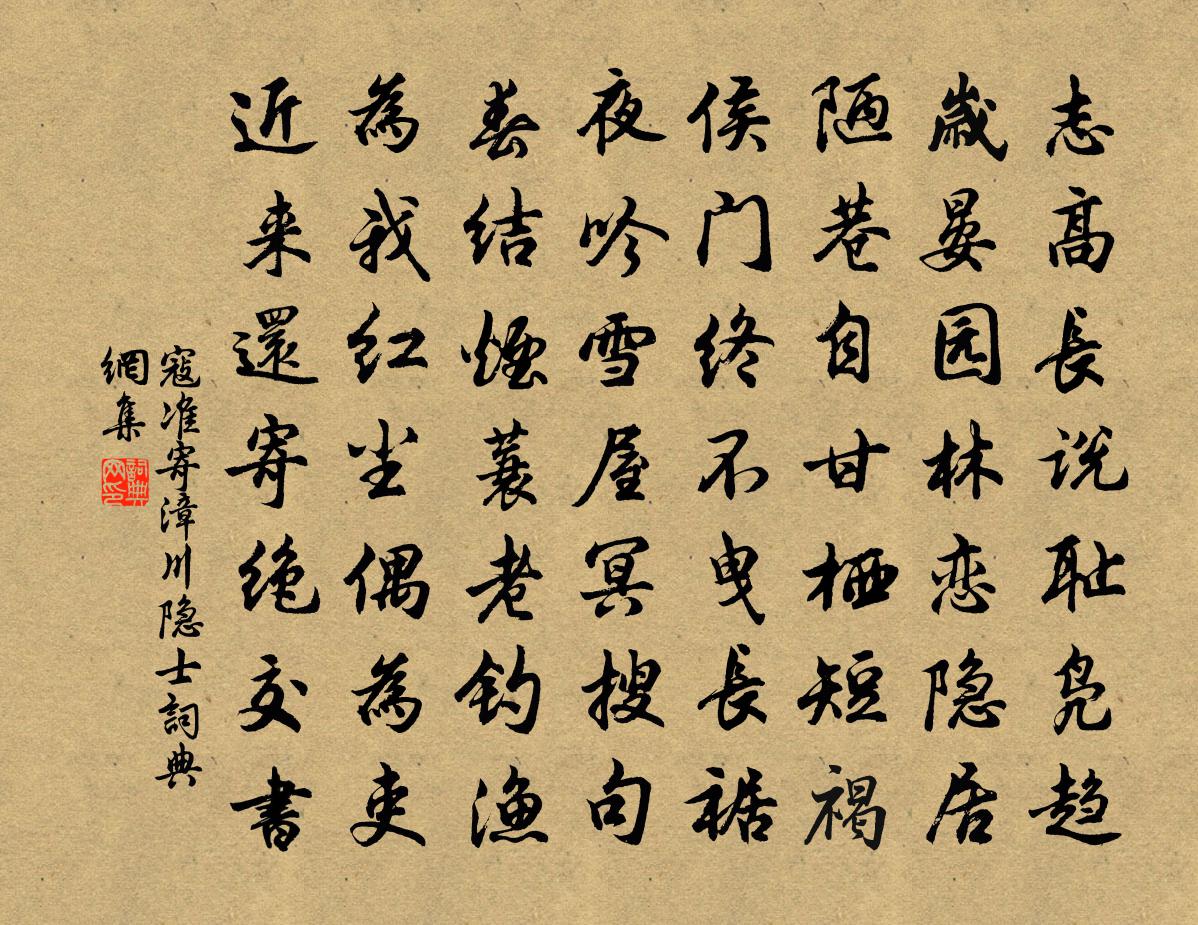 志高長说耻凫趋
歳晏园林恋隐居
陋巷自甘栖短褐
侯门终不曳長裾
夜吟雪屋冥搜句
春结烟蓑老钓渔
為我红尘偶為吏
近来還寄绝交書
寇准寄漳川隐士詞典
網集
詞典网印